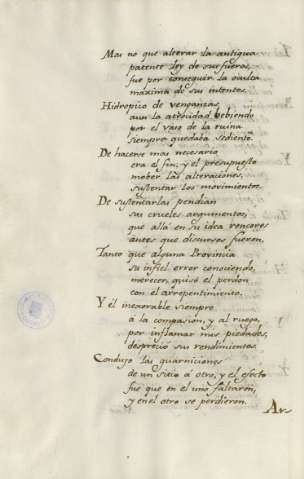 Mas no que alterar la antigua
patente ley de sus fueros,
fue por conseguir la oculta
maxima de sus intentos.
Hidropico de venganzas,
aun la atrocidad bebiendo
por el vaso de la ruina
siempre quedaba sediento.
De hacerse mas necesario
era el fin; y el presupuesto
mober las alteraciones,
sustentar los movimientos.
De sustentarlas pendian
sus crueles argumentos,
que allá en su idea rencores
antes que discursos fueron.
Tanto que alguna Provincia
su infiel error conociendo,
merecer quiso el perdon
con el arrepentimiento.
Y él inexorable siempre
á la compasion, y al ruego,
por inflamar mis piedades,
despreció sus rendimientos.
Condujo las guarniciones
de un sitio á otro, y el efecto
fué que en el uno faltaron,
y en el otro se perdieron.
Ar-